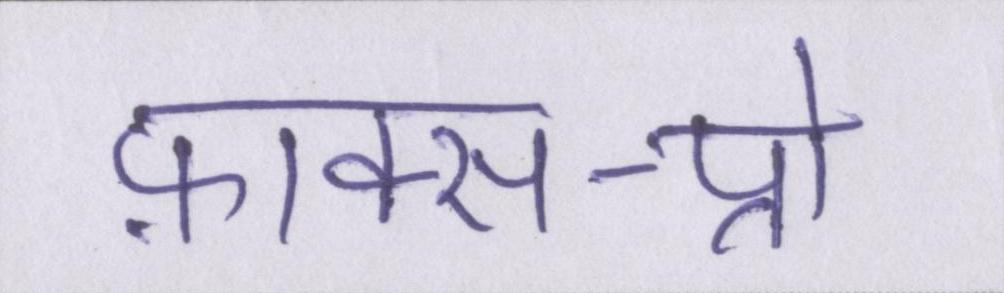 फ़ाक्स-प्रो